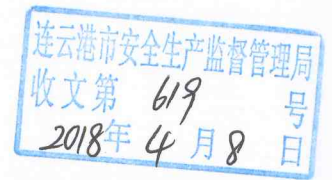 连云港市安全生产监督管理局
收文第 619 号
2018年 4 月 8 日